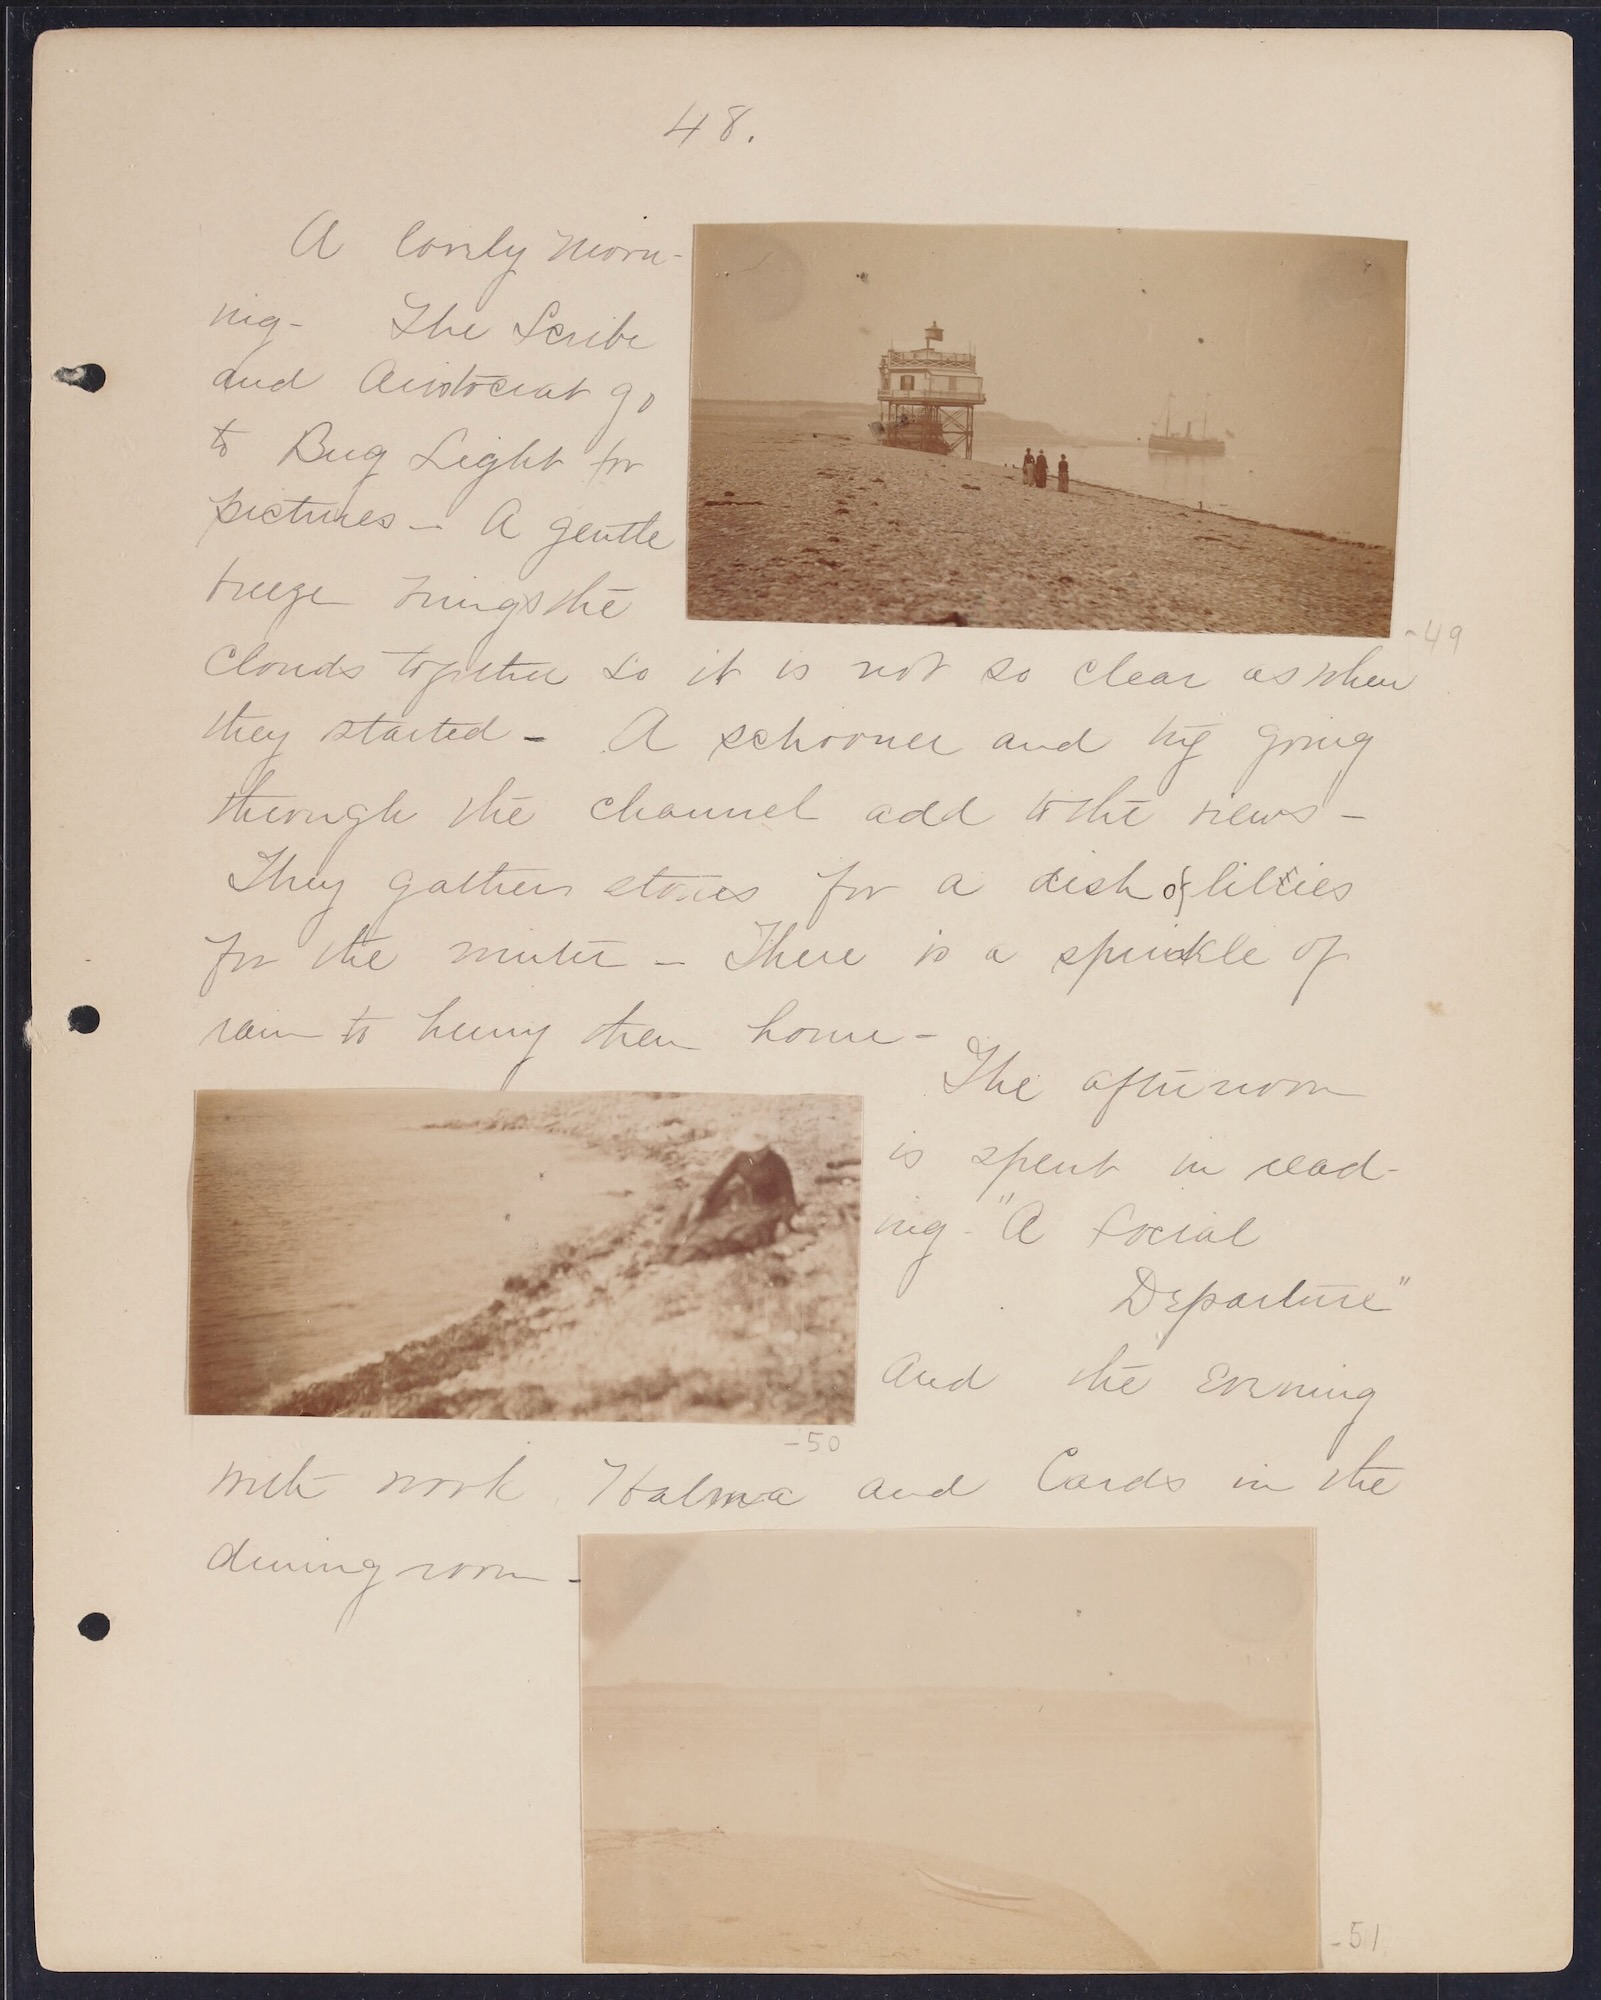 48.
A lovely morn-
ing - The Scribe
and Aristocrat go
to Bug Light for
pictures - A gentle
breeze brings the
clouds together so it is not so clear as when
they started - A schooner and tug going
through the channel add to the views -
They gather stones for a dish of lillies
for the winter - There is a sprinkle of
rain to hurry them home -
The afternoon
is spent in read-
ing - "A Social
Departure"
and the evening
with work Halma and Cards in the
dining room -
-49
-50
-51